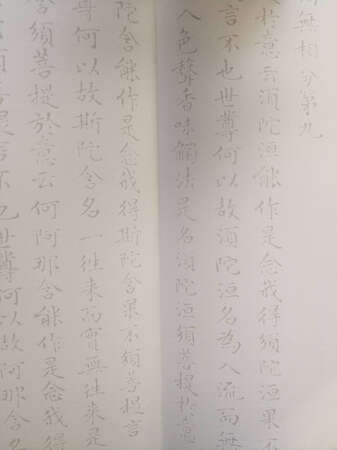 無相分第九
於意云須陀洹能作是念我得須陀洹果不
言不也世尊何以故須陀洹名為入流而無
入色聲香味觸法是名須陀洹須菩提於意
陀含能作是念我得斯陀含果不須菩提言
尊何以故斯陀含名一往來而實無往來是
含須菩提於意云何阿那含能作是念我得
須菩提言不也世尊何以故阿那含名